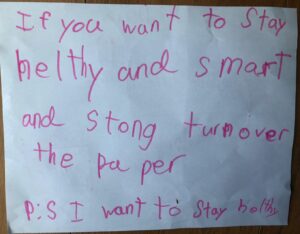 If you want to stay
helthy and smart
and stong turnover
the paper
P:S I want to stay helthy